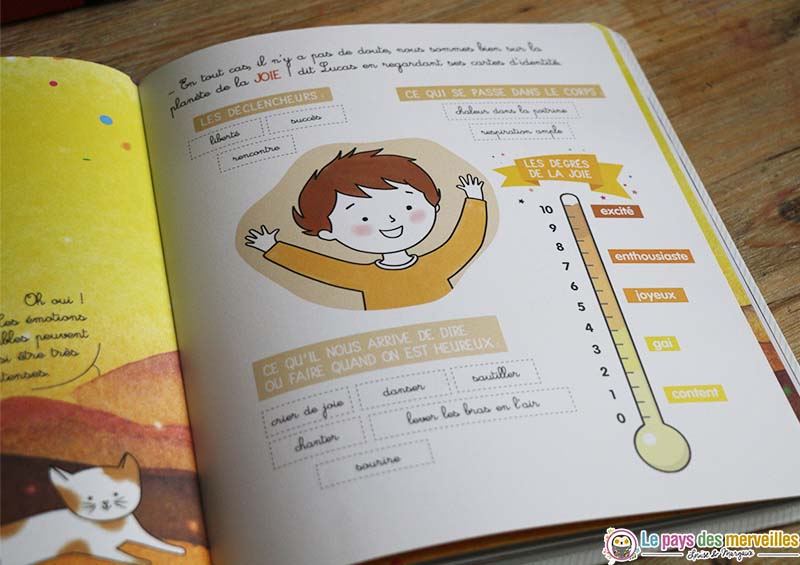 - En tout cas, il n'y a pas de doute, nous sommes bien sur la
planète de la JOIE ! dit Lucas en regardant ses cartes d'identité.
LES DÉCLENCHEURS :
liberté
succès
rencontre
CE QUI SE PASSE DANS LE CORPS
chaleur dans la poitrine
respiration ample
LES DEGRÉS
DE LA JOIE
*
10 excité
9
8 enthousiaste
7
6 joyeux
5
4 gai
3
2
1 content
0
CE QU'IL NOUS ARRIVE DE DIRE
OU FAIRE QUAND ON EST HEUREUX :
crier de joie
danser
sautiller
chanter
lever les bras en l'air
sourire
Oh oui !
Les émotions
peuvent
être très
Le pays des merveilles
Louise & Margaux